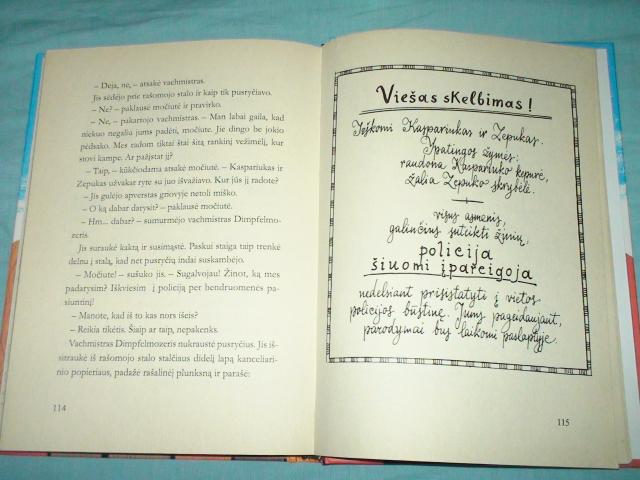 – Deja, ne, – atsakė vachmistras.
Jis sėdėjo prie rašomojo stalo ir kaip tik pusryčiavo.
– Ne? – paklausė močiutė ir pravirko.
– Ne, – pakartojo vachmistras. – Man labai gaila, kad
niekuo negaliu jums padėti, močiute. Jie dingo be jokio
pėdsako. Mes radom tiktai štai šitą rankinį vežimėlį, kur
stovi kampe. Ar pažįstat jį?
– Taip, – kūkčiodama atsakė močiutė. – Kaspariukas ir
Zepukas užvakar ryte su juo išvažiavo. Kur jūs jį radote?
– Jis gulėjo apverstas griovyje netoli miško.
– O ką dabar darysit? – paklausė močiutė.
– Hm... dabar? – sumurmėjo vachmistras Dimpfelmo-
zeris.
Jis suraukė kaktą ir susimąstė. Paskui staiga taip trenkė
delnu į stalą, kad net pusryčių indai suskambėjo.
– Močiute! – sušuko jis. – Sugalvojau! Žinot, ką mes
padarysim? Iškviesim į policiją per bendruomenės pa-
siuntinį!
– Manote, kad iš to kas nors išeis?
– Reikia tikėtis. Šiaip ar taip, nepakenks.
Vachmistras Dimpfelmozeris nukraustė pusryčius. Jis iš-
sitraukė iš rašomojo stalo stalčiaus didelį lapą kanceliari-
nio popieriaus, padažė rašalinėj plunksną ir parašė:
114
Viešas skelbimas!
Ieškomi Kaspariukas ir Zepukas.
Ypatingos žymės:
raudona Kaspariuko kepurė,
žalia Zepuko skrybėlė.
visus asmenis,
galinčius suteikti žinių,
policija
šiuomi įpareigoja
nedelsiant prisistatyti į vietos
policijos būstinę. Jums pageidaujant,
parodymai bus laikomi paslaptyje.
115